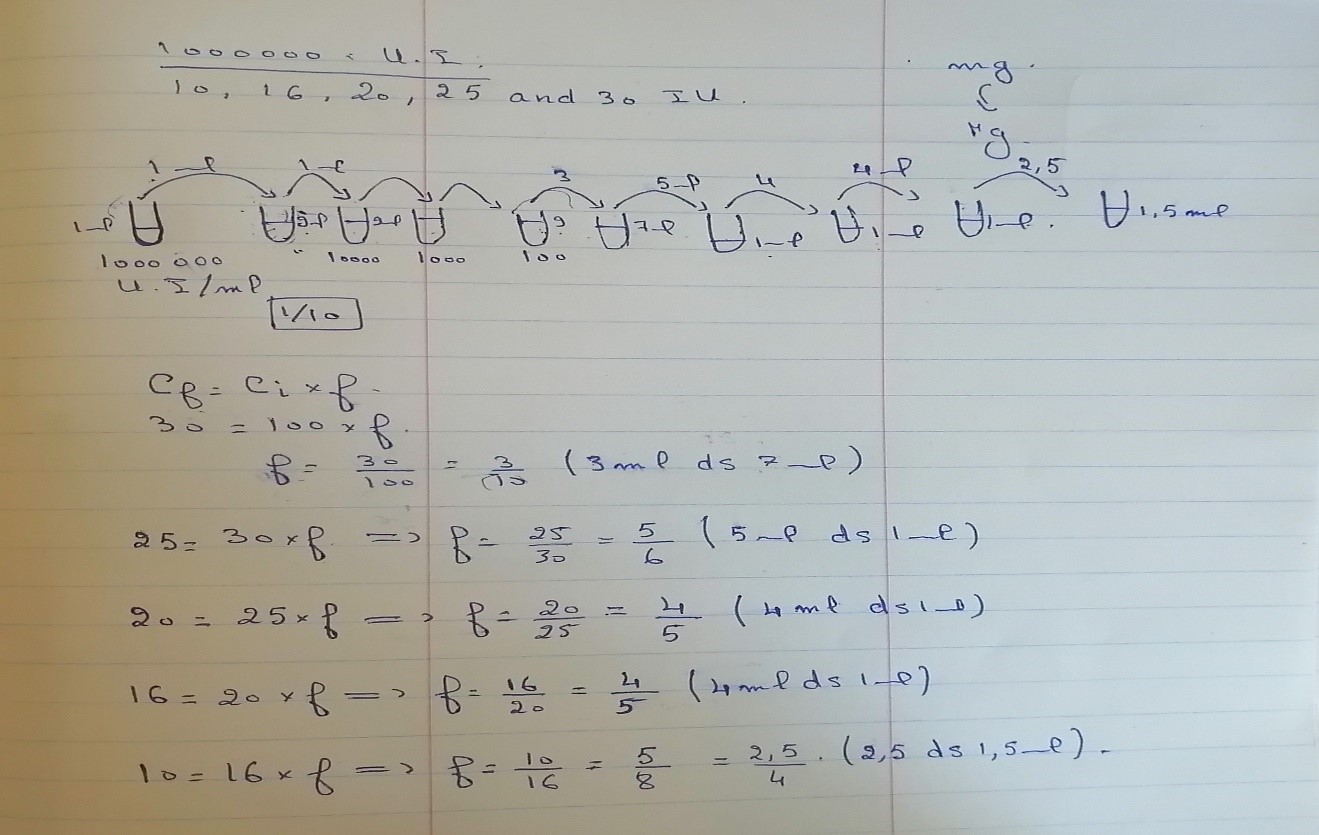 1000000 U.I.
10, 16, 20, 25 and 30 IU.
mg.
µg
1 ml 1 ml 3 5 ml 4 4 ml 2,5
1 ml 9 ml 9 ml 9 7 ml 1 ml 1 ml 1 ml. 1,5 ml
1000 000 " 10000 1000 100
U.I/ml
1/10
Cf = Ci × f.
30 = 100 × f.
f = 30/100 = 3/10 (3 ml ds 7 ml)
25 = 30 × f => f = 25/30 = 5/6 (5 ml ds 1 ml)
20 = 25 × f => f = 20/25 = 4/5 (4 ml ds 1 ml)
16 = 20 × f => f = 16/20 = 4/5 (4 ml ds 1 ml)
10 = 16 × f => f = 10/16 = 5/8 = 2,5/4. (2,5 ds 1,5 ml).